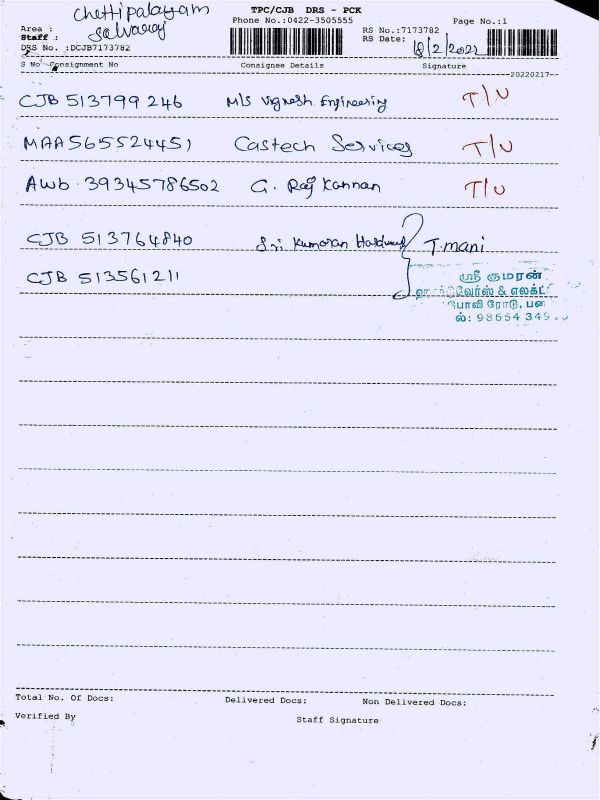 TPC/CJB DRS - PCK
Phone No.:0422-3505555
Page No.:1
Area : Chettipalayam
Staff : Selvaraj
DRS No. :DCJB7173782
RS No.:7173782
RS Date: 18/2/2022
S No Consignment No Consignee Details Signature
20220217
CJB 513799246 M/s Vignesh Engineering T/U
MAA565524451 Castech Services T/U
Awb 39345786502 G. Raj Kannan T/U
CJB 513764840 Sri Kumaran Hardware T.mani
CJB 513561211
ஸ்ரீ குமரன்
ஹார்டுவேர்ஸ் & எலக்ட்
போவி ரோடு, பன
ல்: 98654 345
Total No. Of Docs: Delivered Docs: Non Delivered Docs:
Verified By Staff Signature